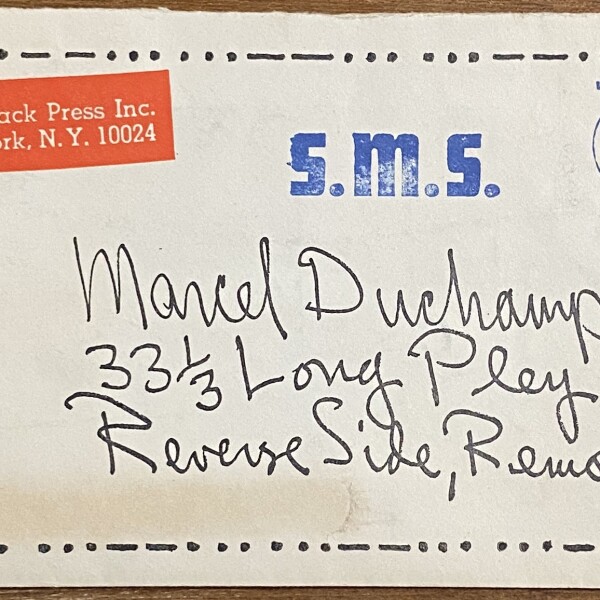 ack Press Inc.
ork, N.Y. 10024
s.m.s.
Marcel Duchamp
33 1/3 Long Pley
Reverse Side, Remo